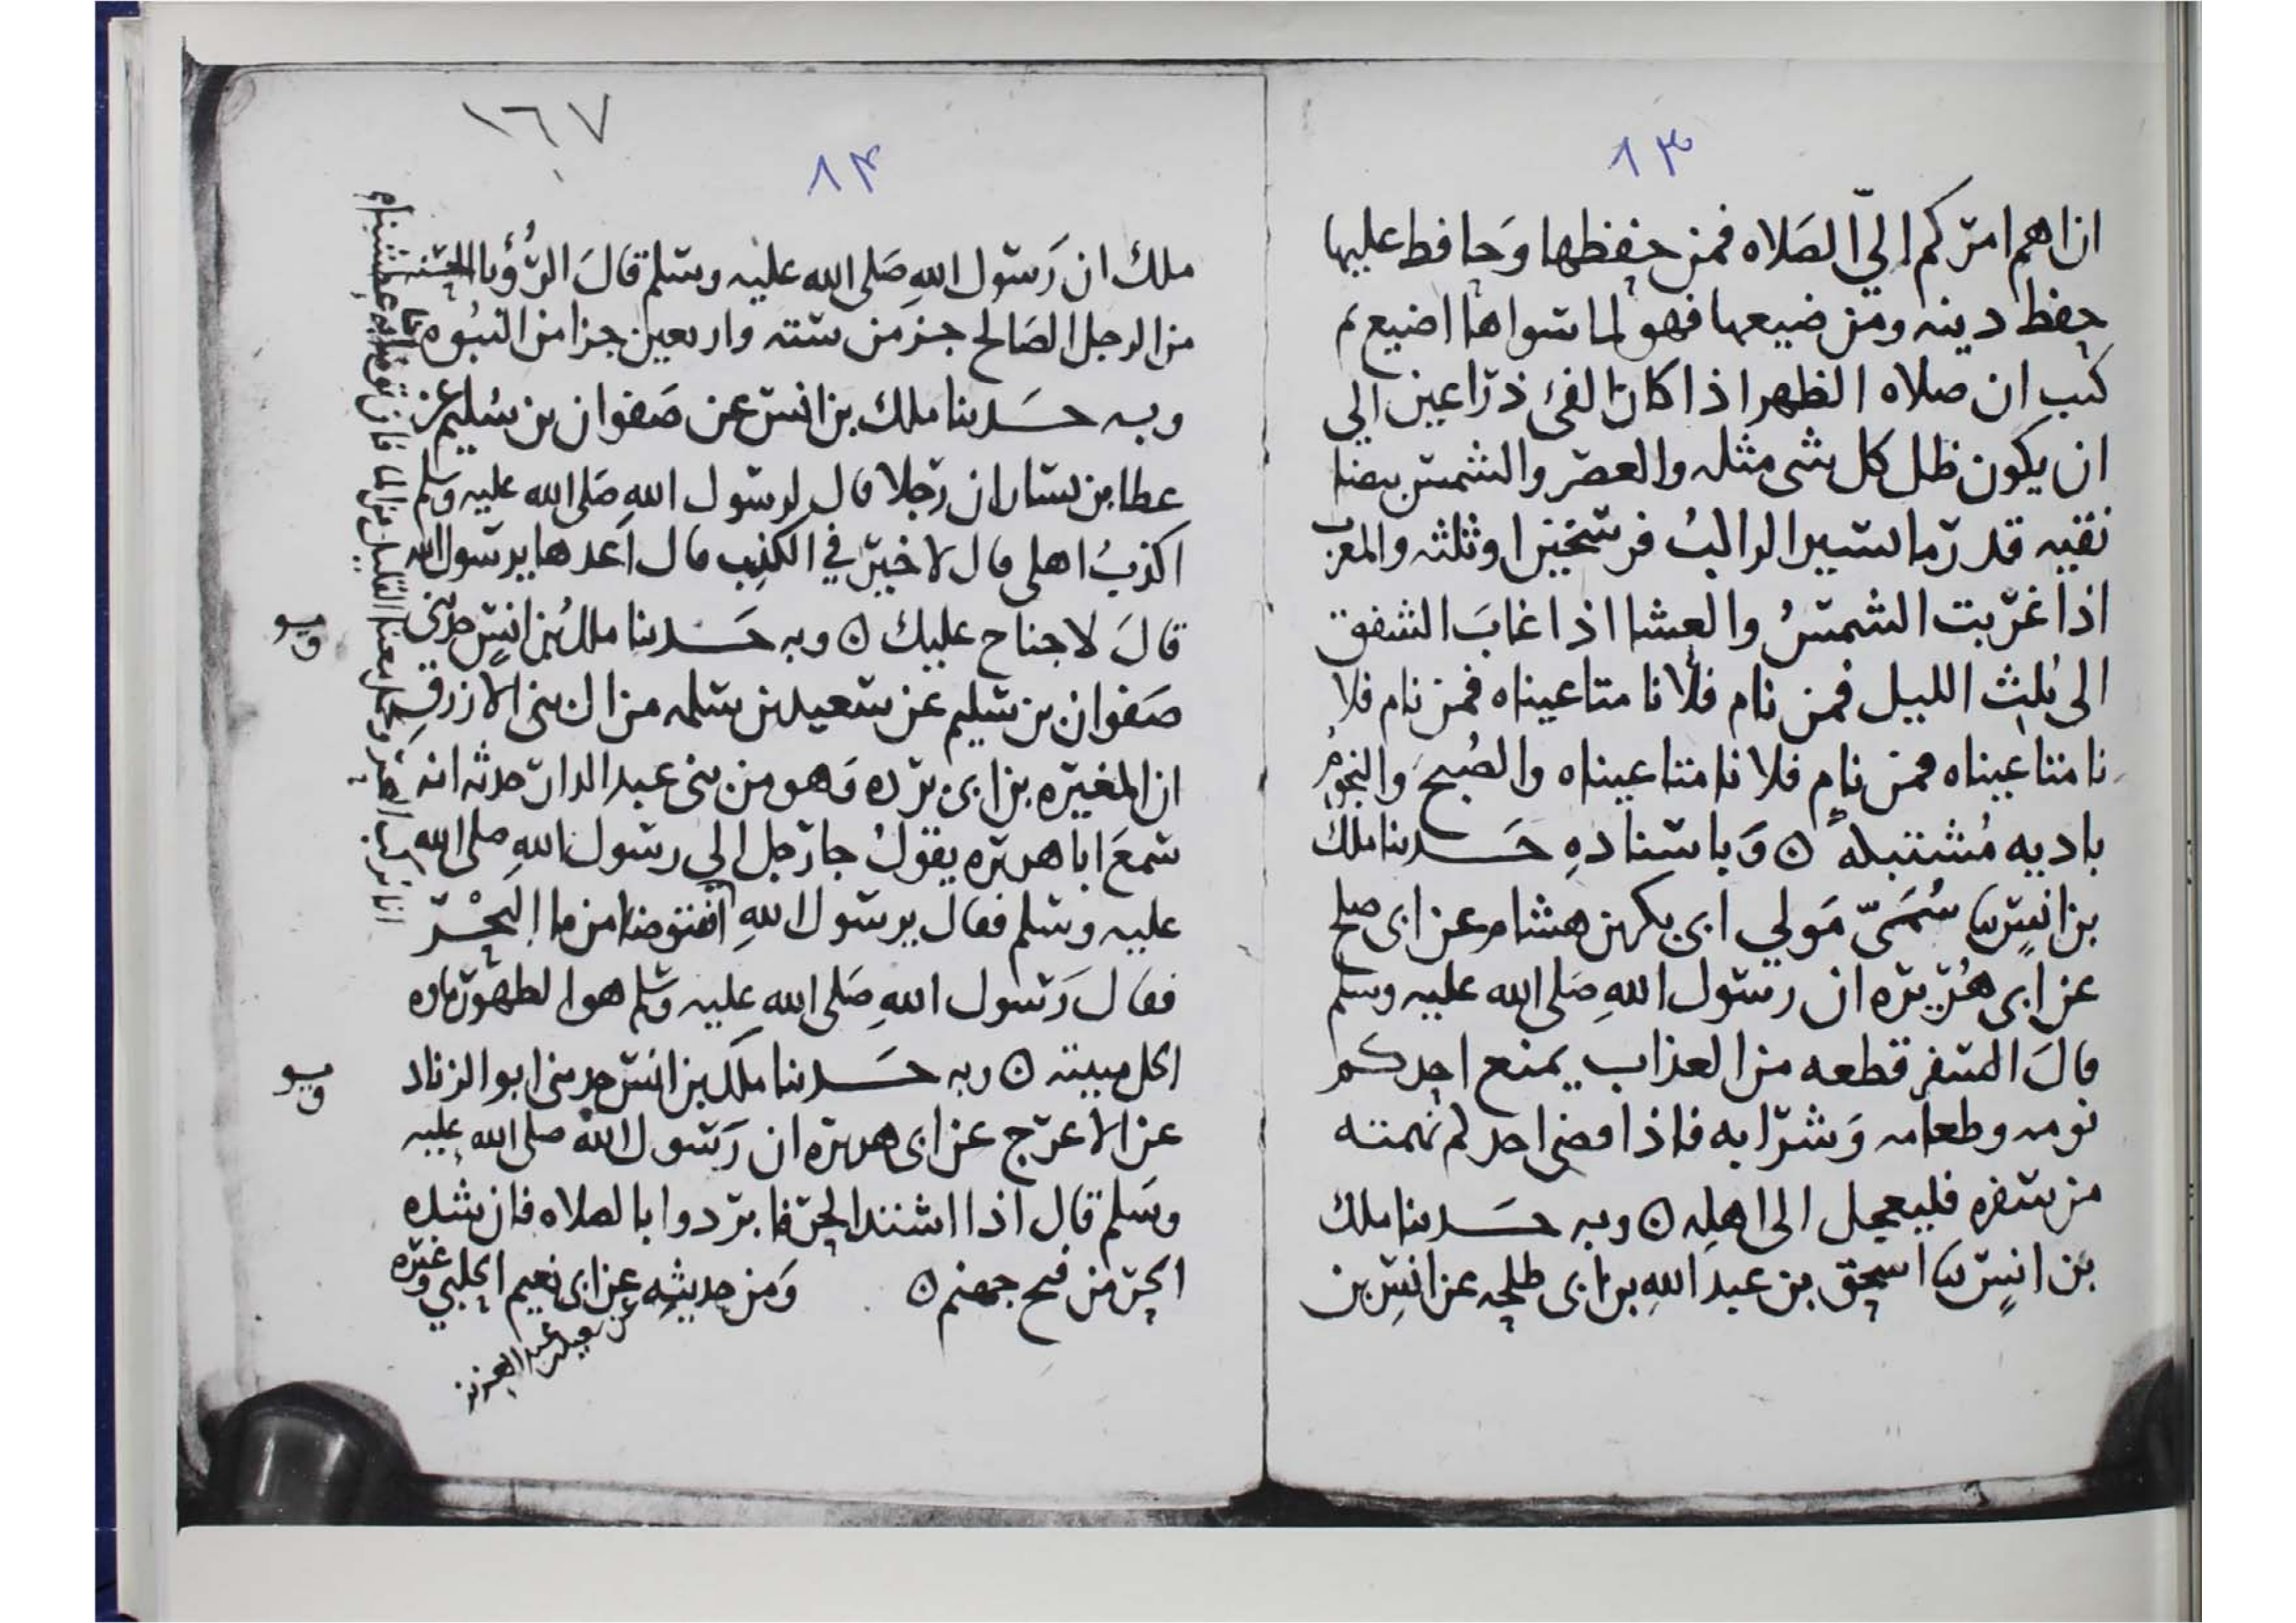 ١٣
ان اهم امركم الي الصلاه فمن حفظها وحافظ عليها
حفظ دينه ومن ضيعها فهو لما سواها اضيع ثم
كتب ان صلاه الظهر اذا كان الفئ ذراعين الي
ان يكون ظل كل شي مثله والعصر والشمس بيضا
نقيه قدر ما يسير الراكب فرسخين او ثلثه والمغرب
اذا غربت الشمس والعشا اذا غاب الشفق
الى ثلث الليل فمن نام فلا نامتا عيناه فمن نام فلا
نامتا عيناه فمن نام فلا نامتا عيناه والصبح والنجوم
باديه مشتبكة ٥ وباسناده حدثنا ملك
بن انس ثنا سمي مولي ابي بكر بن هشام عن ابي صلح
عن ابي هريره ان رسول الله صلى الله عليه وسلم
قال السفر قطعه من العذاب يمنع احدكم
نومه وطعامه وشرابه فاذا قضى احدكم نهمته
من سفره فليعجل الى اهله ٥ وبه حدثنا ملك
بن انس ثنا اسحق بن عبد الله بن ابي طلحه عن انس بن
١٦٧
١٣
ملك ان رسول الله صلى الله عليه وسلم قال الرؤيا الحسنه
من الرجل الصالح جز من سته واربعين جزا من النبوه
وبه حدثنا ملك بن انس عن صفوان بن سليم عن
عطا بن يسار ان رجلا قال لرسول الله صلى الله عليه وسلم
اكذب اهلي قال لا خير في الكذب قال اعدها يرسول الله
قال لا جناح عليك ٥ وبه حدثنا ملك بن انس حدثني
صفوان بن سليم عن سعيد بن سلمه من ال بني الازرق
ان المغيره بن ابي برده وهو من بني عبد الدار حدثه انه
سمع ابا هريره يقول جا رجل الي رسول الله صلى الله
عليه وسلم فقال يرسول الله افنتوضا من ما البحر
فقال رسول الله صلى الله عليه وسلم هو الطهور ماوه
الحل ميتته ٥ وبه حدثنا ملك بن انس حدثني ابو الزناد
عن الاعرج عن ابي هريره ان رسول الله صلى الله عليه
وسلم قال اذا اشتد الحر فابردوا بالصلاه فان شده
الحر من فيح جهنم ٥ ومن حديثه عن ابي نعيم الحلبي وغيره
عن سعيد بن عبد العزيز
انا نركب البحر ونحمل معنا القليل من الما فان توضانا به عطشنا